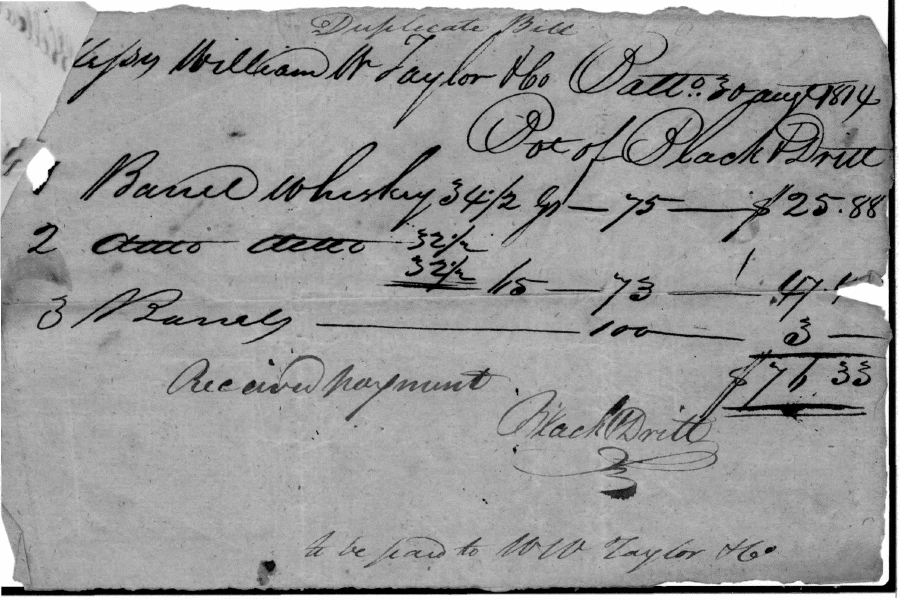 Duplicate Bill
Messrs William W Taylor & Co Balto. 30 augt 1814
Bot of Black & Dritt
1 Barrel Whiskey 34 1/2 Gs — 75 — $25.88
2 ditto ditto 32 1/2
32 1/2 65 — 73 — 47.4
3 Barrels — 100 — 3 —
$76.33
Received payment
Black & Dritt
to be paid to W W Taylor & Co